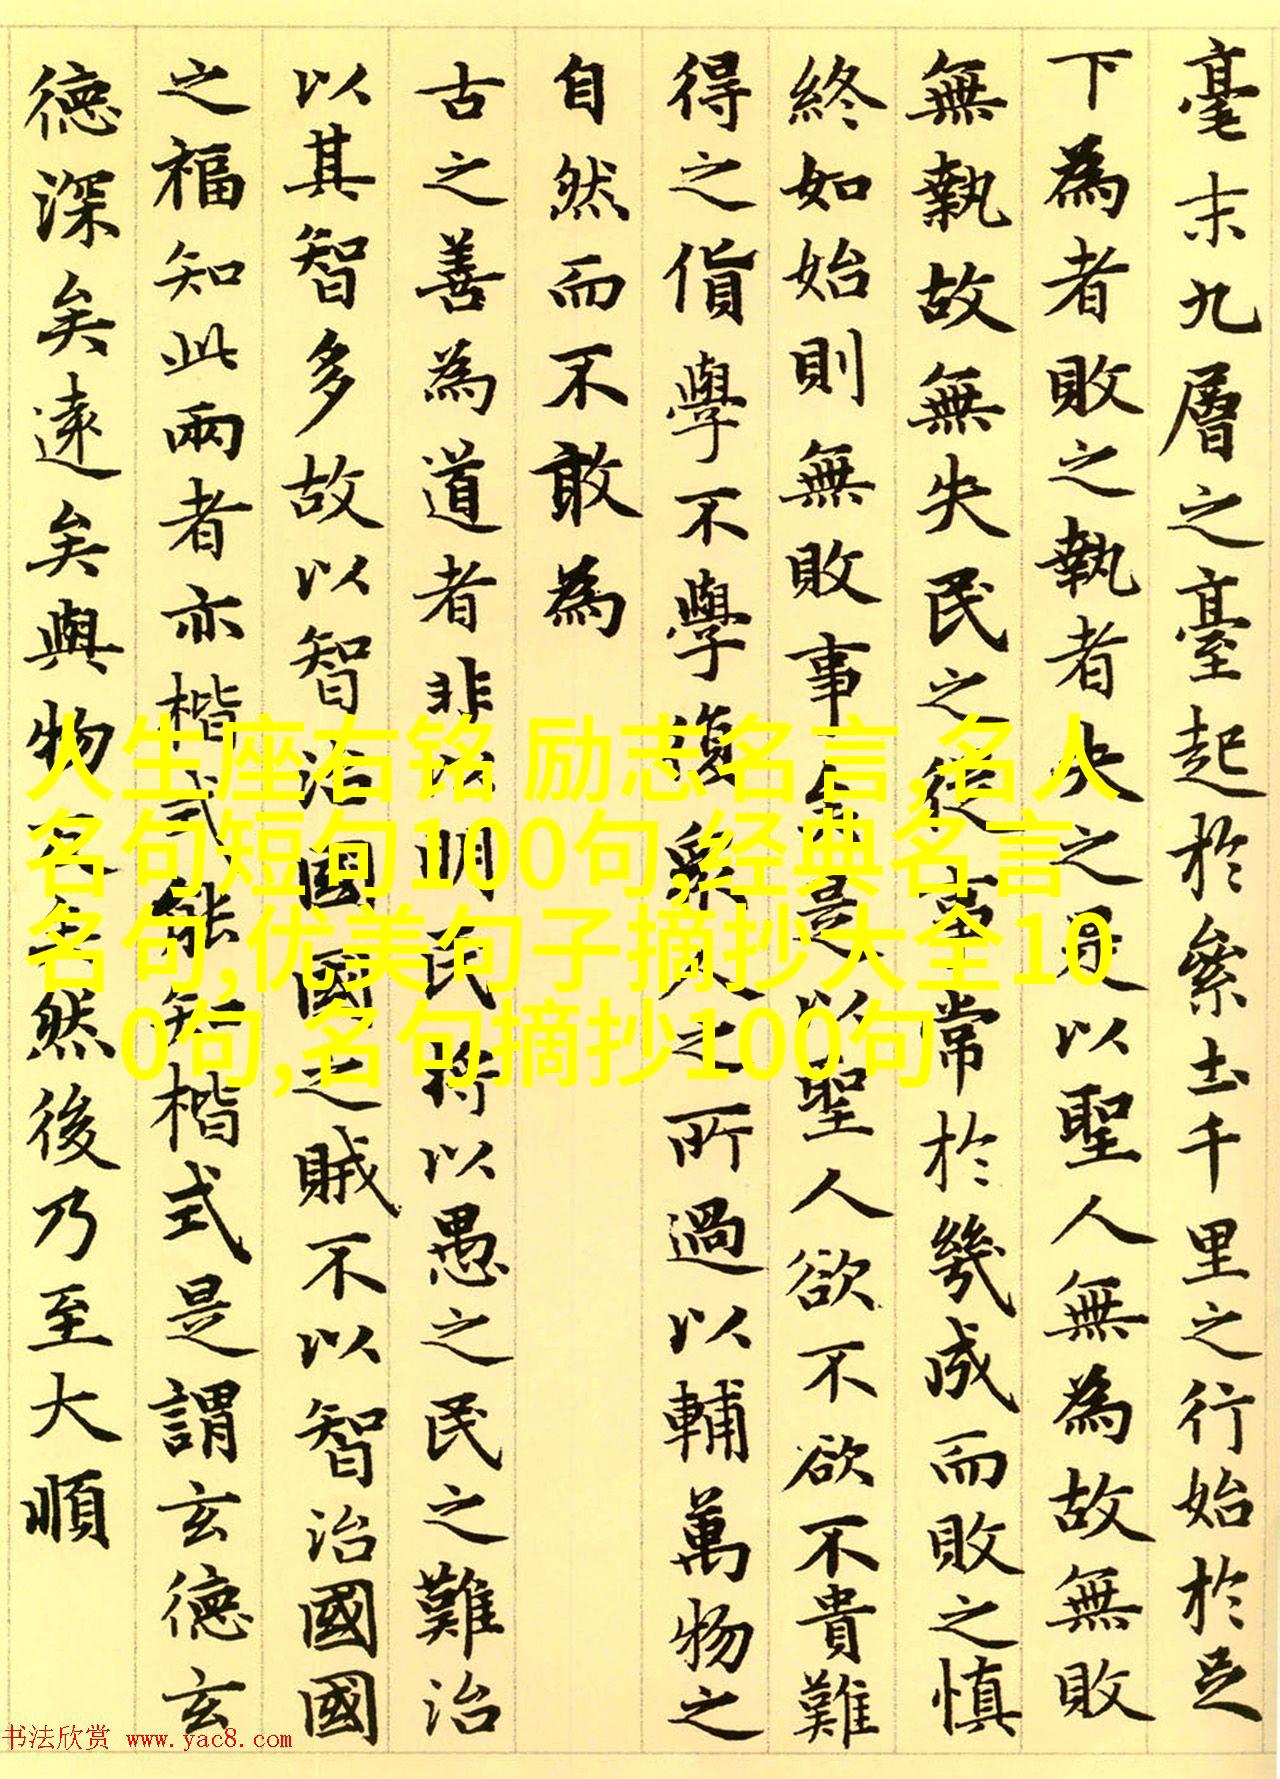 毫末九層之臺起於絫土千里之行始於足
下為者敗之執者失之是以聖人無為故無敗
無執故無失民之從事常於幾成而敗之慎
終如始則無敗事是以聖人欲不欲不貴難
得之貨學不學復眾人之所過以輔萬物之
自然而不敢為
古之善為道者非以明民將以愚之民之難治
以其智多故以智治國國之賊不以智治國國
之福知此兩者亦楷式能知楷式是謂玄德玄
德深矣遠矣與物反矣然後乃至大順
人生座右铭 励志名言,名人
名句短句100句,经典名言
名句,优美句子摘抄大全10
0句,名句摘抄100句
书法欣赏 www.yac8.com